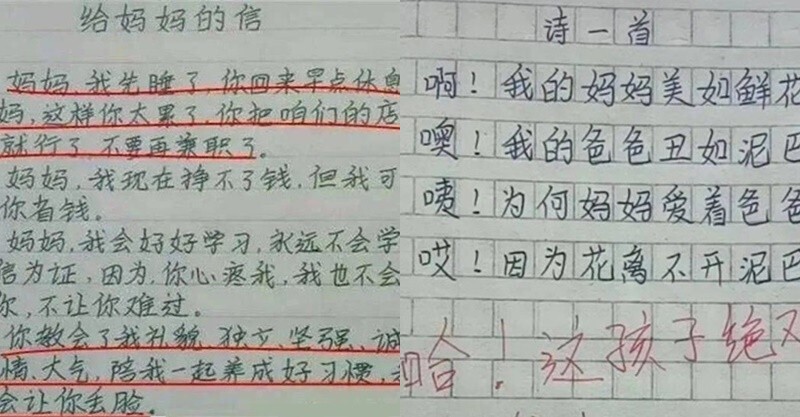 给妈妈的信
妈妈,我先睡了,你回来早点休息
妈,这样你太累了,你把咱们的店
就行了,不要再兼职了。
妈妈,我现在挣不了钱,但我可
你省钱。
妈妈,我会好好学习,永远不会学
信为证,因为,你心疼我,我也不会
你,不让你难过。
你教会了我礼貌、独立、坚强、诚
情、大气,陪我一起养成好习惯,
会让你丢脸。
诗一首
啊!我的妈妈美如鲜花
噢!我的爸爸丑如泥巴
咦!为何妈妈爱着爸爸
哎!因为花离不开泥巴
哈!这孩子绝